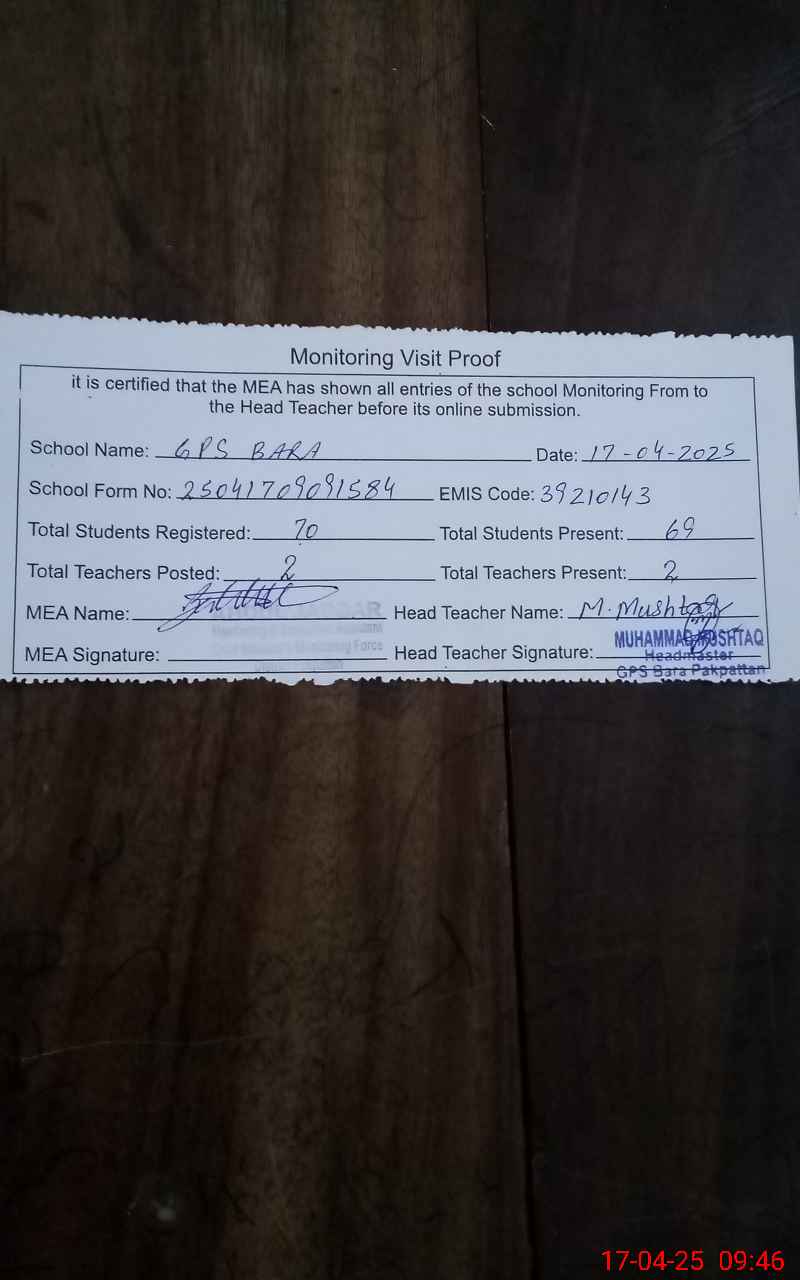 Monitoring Visit Proof
it is certified that the MEA has shown all entries of the school Monitoring From to
the Head Teacher before its online submission.
School Name: GPS BARA Date: 17-04-2025
School Form No: 25041709091584 EMIS Code: 39210143
Total Students Registered: 70 Total Students Present: 69
Total Teachers Posted: 2 Total Teachers Present: 2
MEA Name: Head Teacher Name: M. Mushtaq
MEA Signature: Head Teacher Signature:
MUHAMMAD MUSHTAQ
Headmaster
GPS Bara Pakpattan
17-04-25 09:46